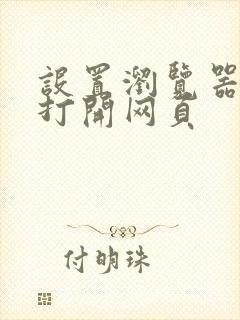 設置瀏覽器
打開网頁
付明珠